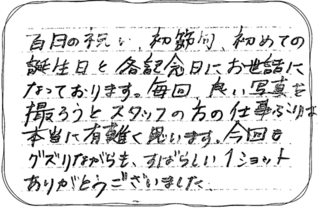 百日の祝い、初節句、初めての
誕生日と各記念日にお世話に
なっております。毎回、良い写真を
撮ろうとスタッフの方の仕事ぶりは
本当に有難く思います。今回も
グズリながらも、すばらしい1ショット
ありがとうございました。